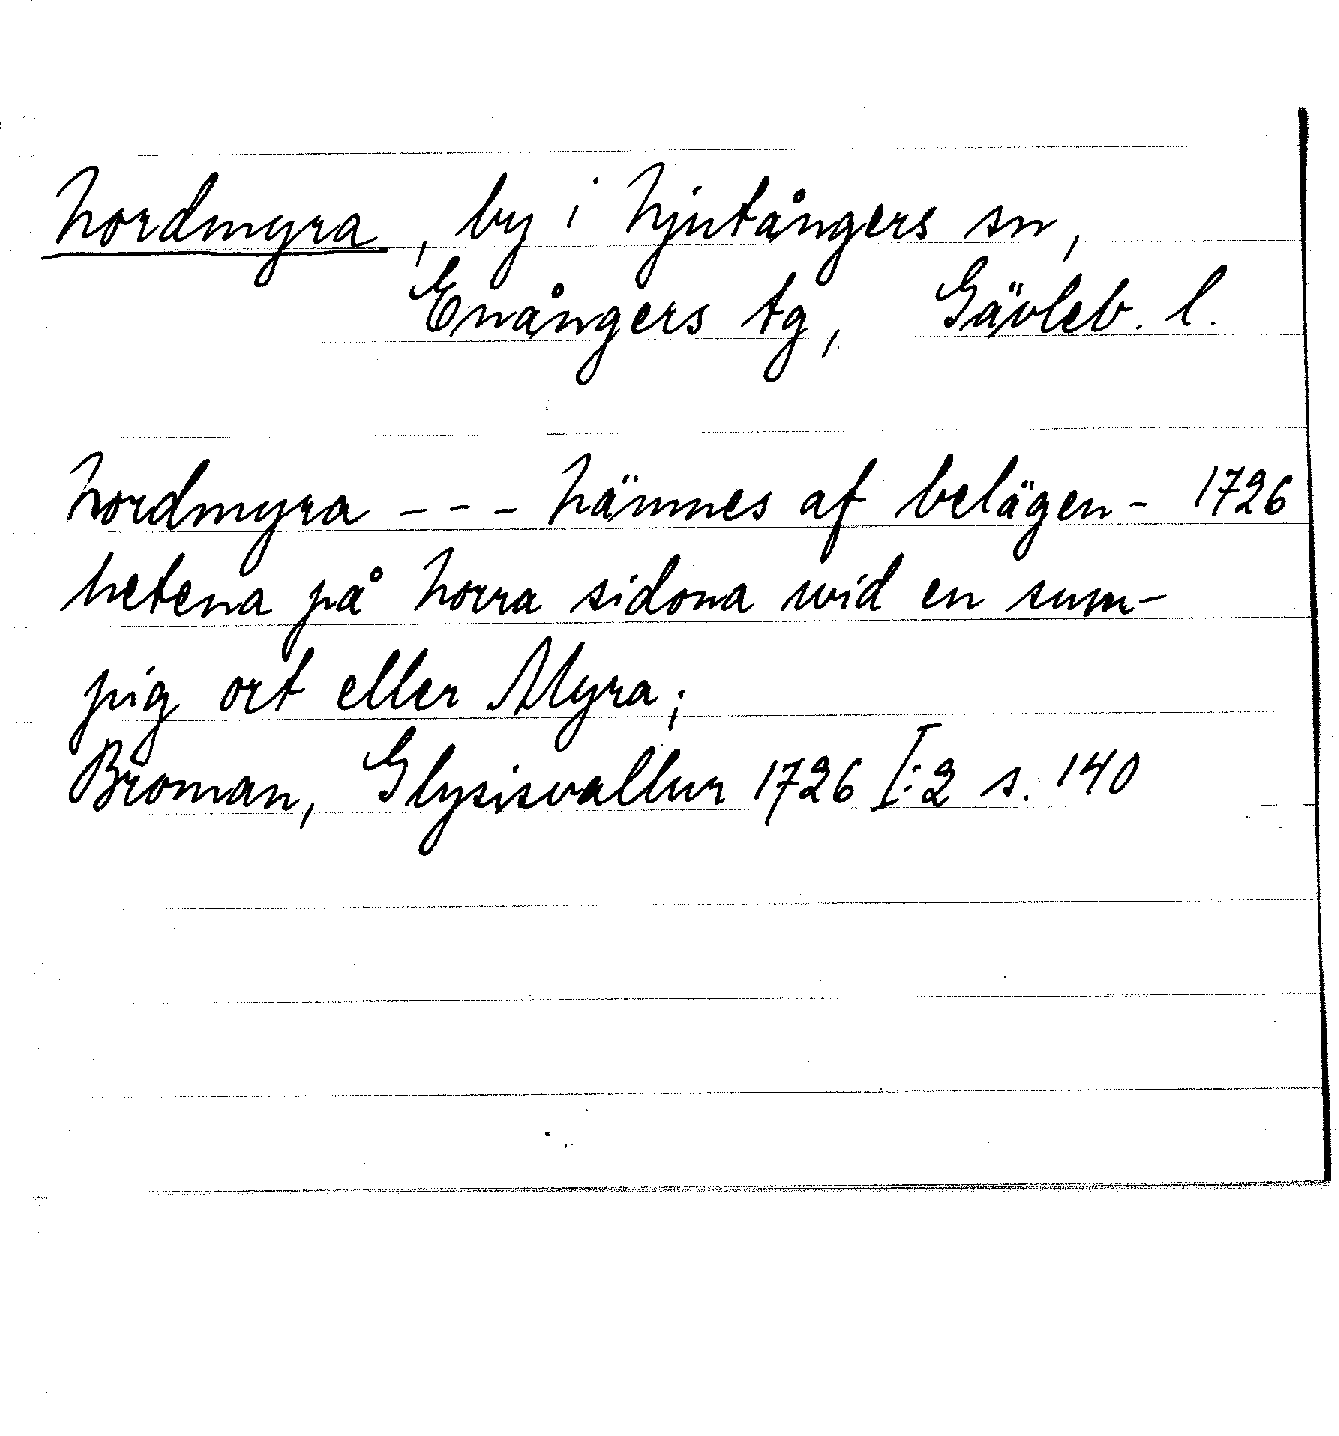 Nordmyra, by i Njutångers sn,
Enångers tg, Gävleb. l.
Nordmyra --- Nämnes af belägen- 1726
hetena på Norra sidona wid en sum-
pig ort eller Myra;
Broman, Glysisvallur 1726 I:2 s. 140